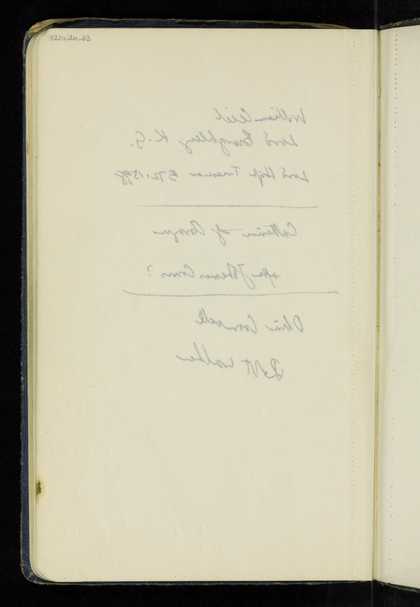 William Cecil
Lord Burghley K.G.
Lord High Treasurer 1572-1598
Catherine of Aragon
after Corvus?
Oliver Cromwell
Robt Walker